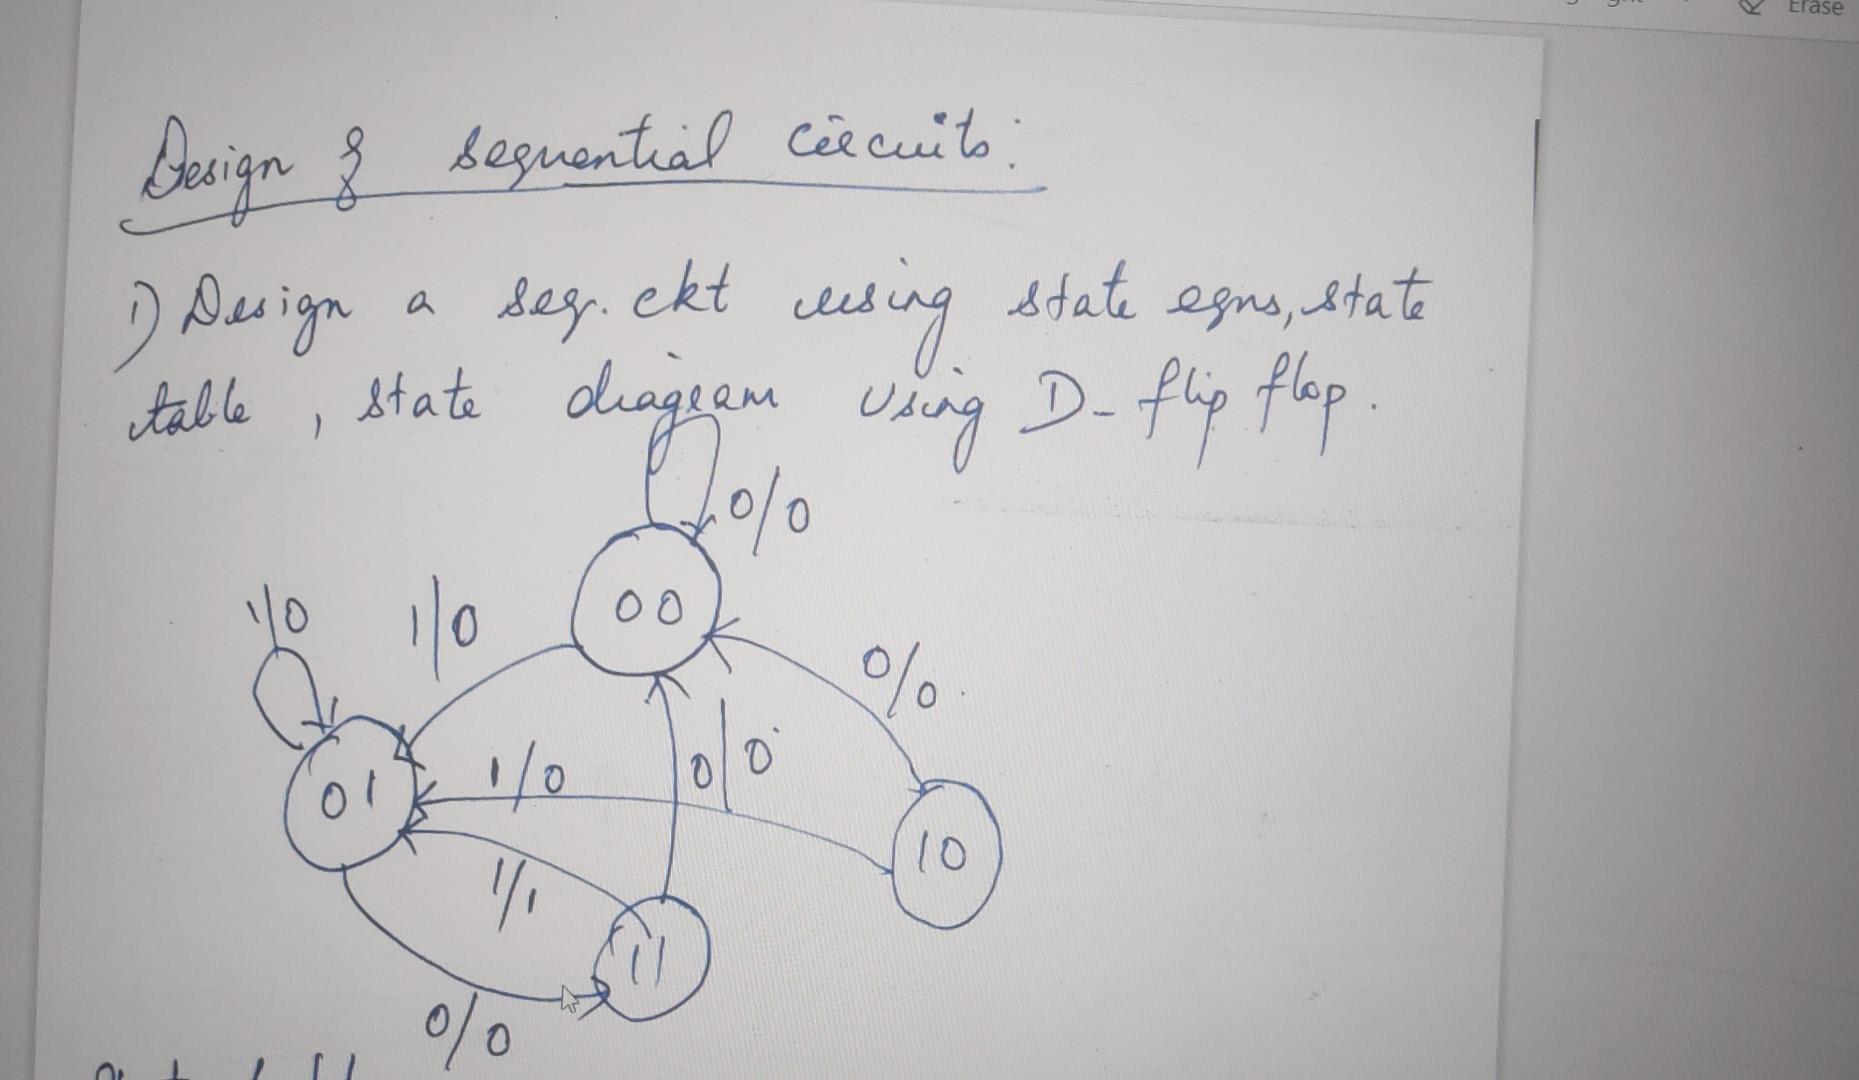 Erase
Design of sequential circuits:
1) Design a seq. ckt using state eqns, state
table , state diagram using D- flip flop.
0/0
00
1/0
1/0
0/0
1/0
0/0
01
10
1/1
11
0/0